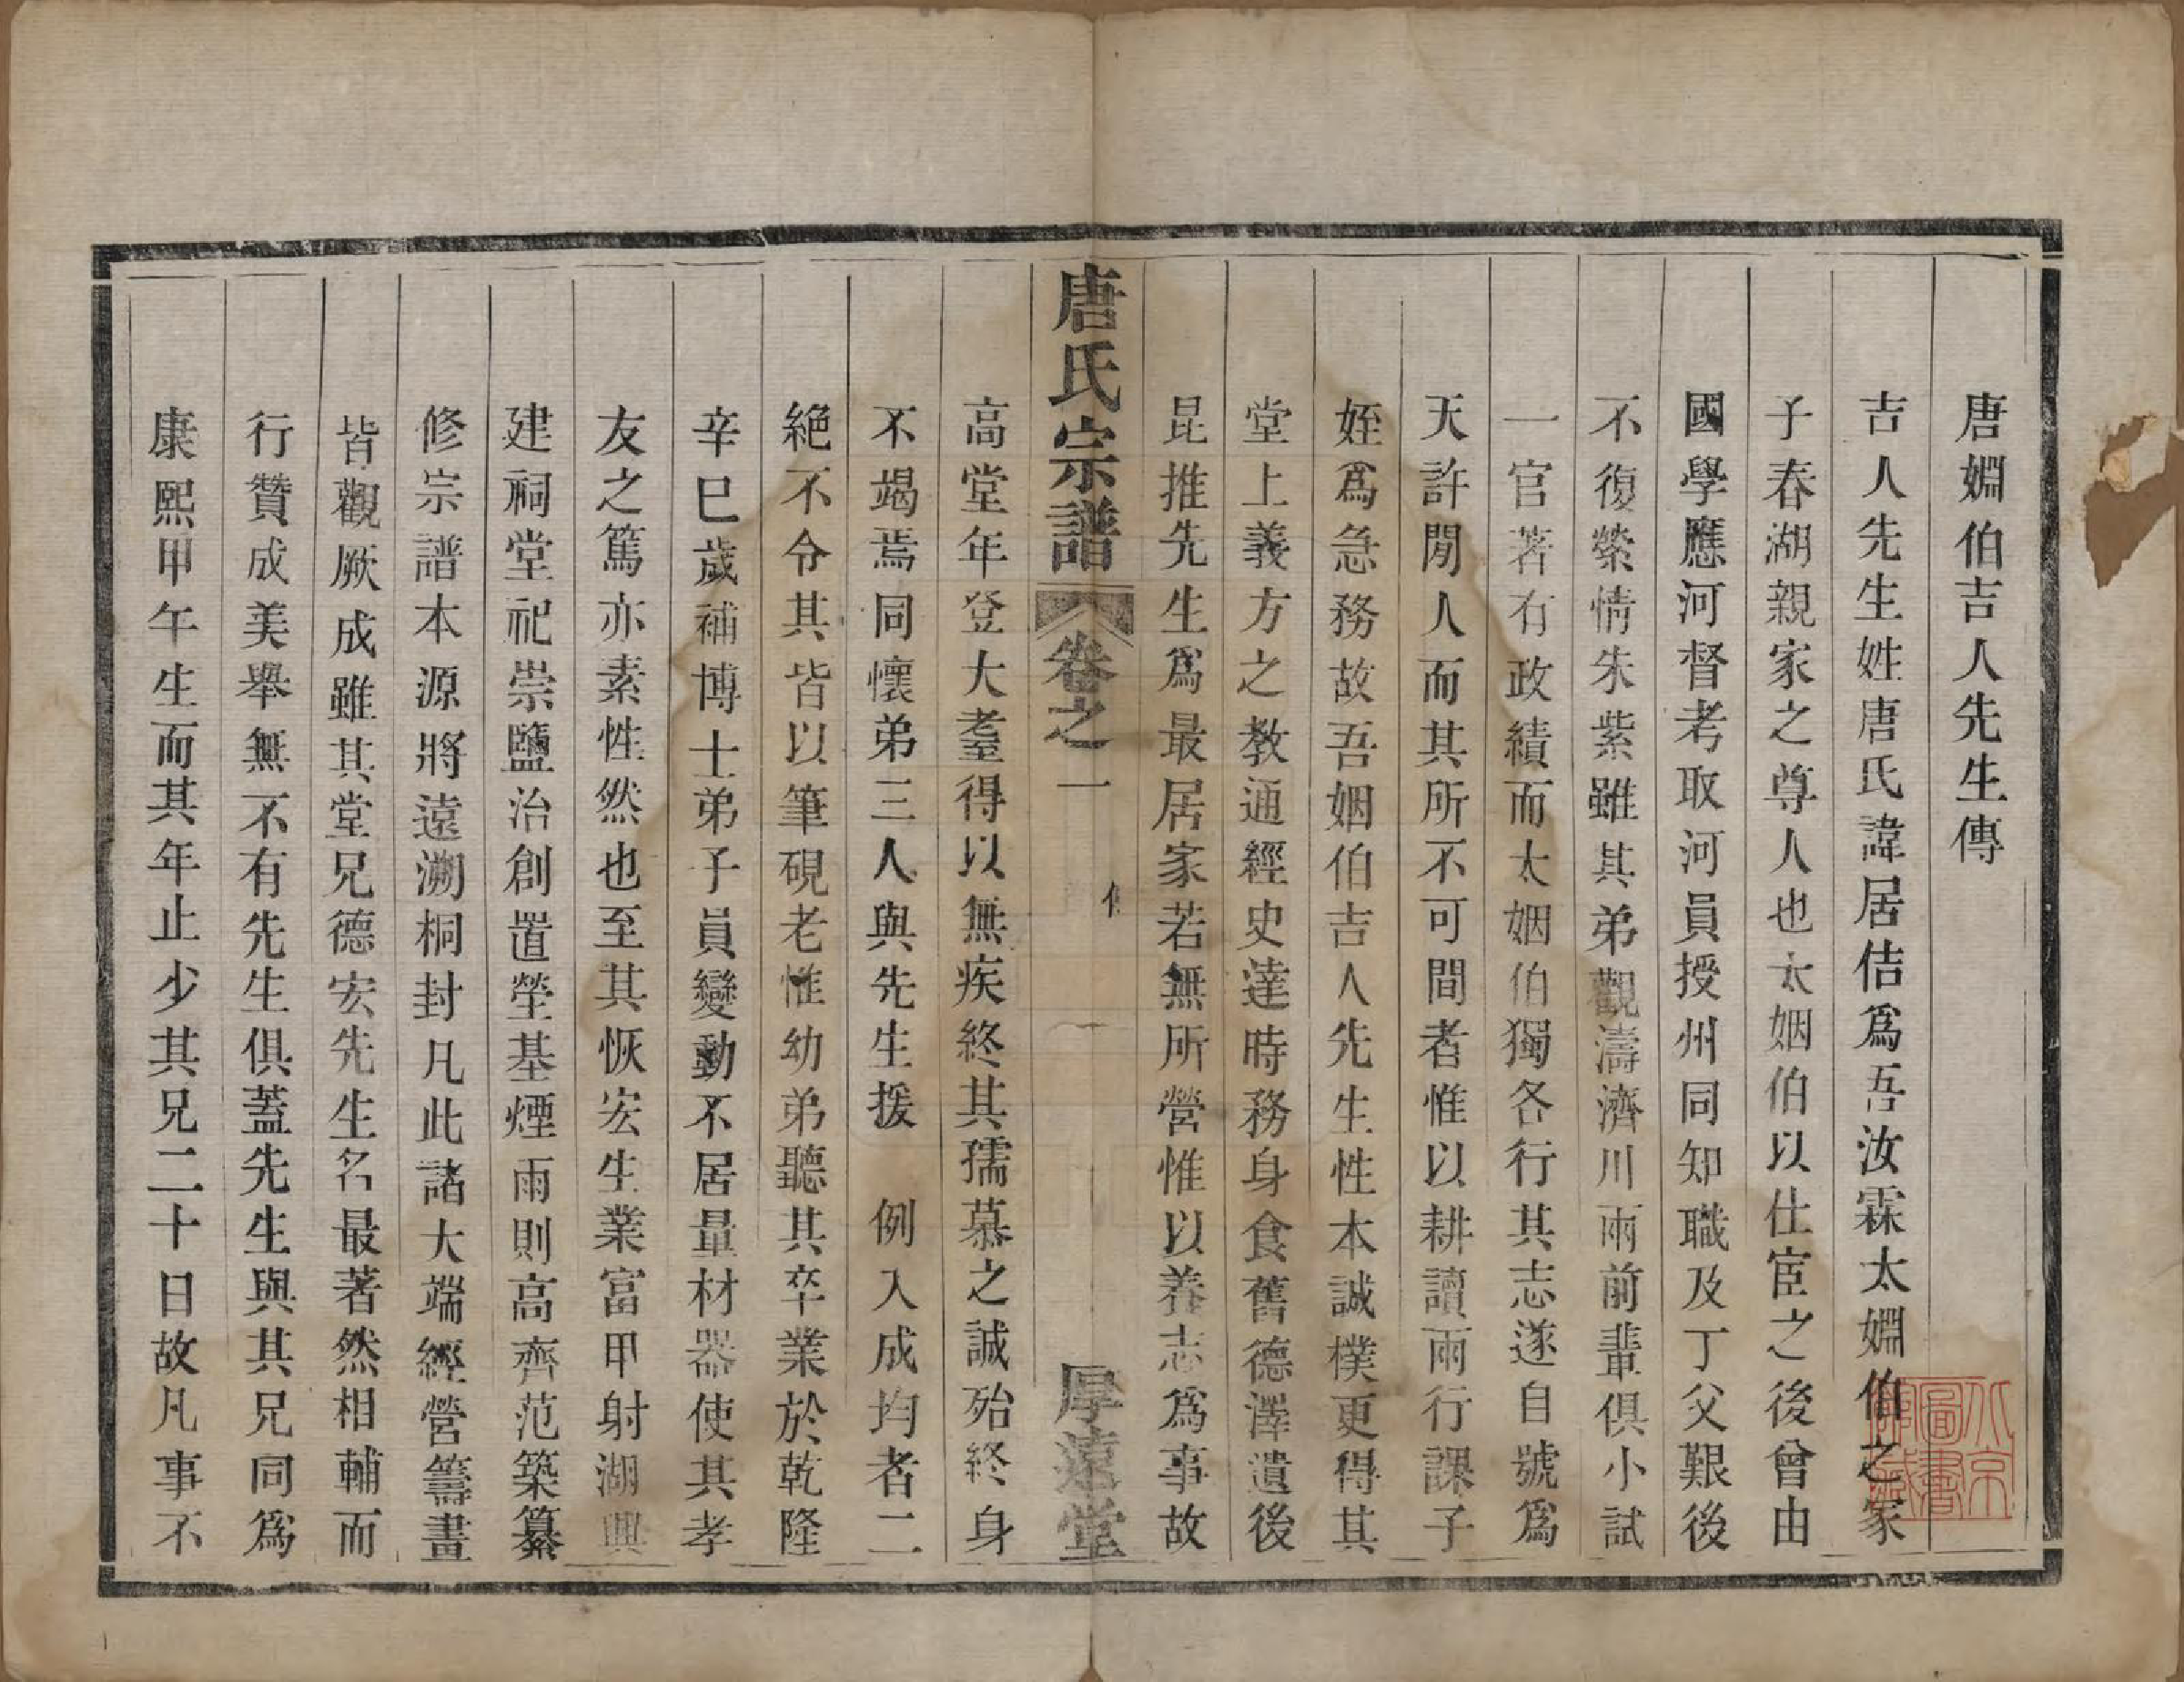 唐婣伯吉人先生傳
吉人先生姓唐氏諱居佶爲吾汝霖太婣伯之冢
子春湖親家之尊人也太姻伯以仕宦之後曾由
國學應河督考取河員授州同知職及丁父艱後
不復縈情朱紫雖其弟觀濤濟川兩前輩俱小試
一官著有政績而太姻伯獨各行其志遂自號爲
天許閒人而其所不可間者惟以耕讀兩行課子
姪爲急務故吾姻伯吉人先生性本誠樸更得其
堂上義方之教通經史達時務身食舊德澤遺後
昆推先生爲最居家若無所營惟以養志爲事故
唐氏宗譜 卷之一 厚遠堂
高堂年登大耋得以無疾終其孺慕之誠殆終身
不竭焉同懷弟三人與先生援 例入成均者二
絕不令其皆以筆硯老惟幼弟聽其卒業於乾隆
辛巳歲補博士弟子員變動不居量材器使其孝
友之篤亦素性然也至其恢宏生業富甲射湖興
建祠堂祀崇鹽治創置塋基煙雨則高齊范築纂
修宗譜本源將遠溯桐封凡此諸大端經營籌畫
皆觀厥成雖其堂兄德宏先生名最著然相輔而
行贊成美舉無不有先生俱蓋先生與其兄同爲
康熙甲午生而其年止少其兄二十日故凡事不
北京圖書館藏